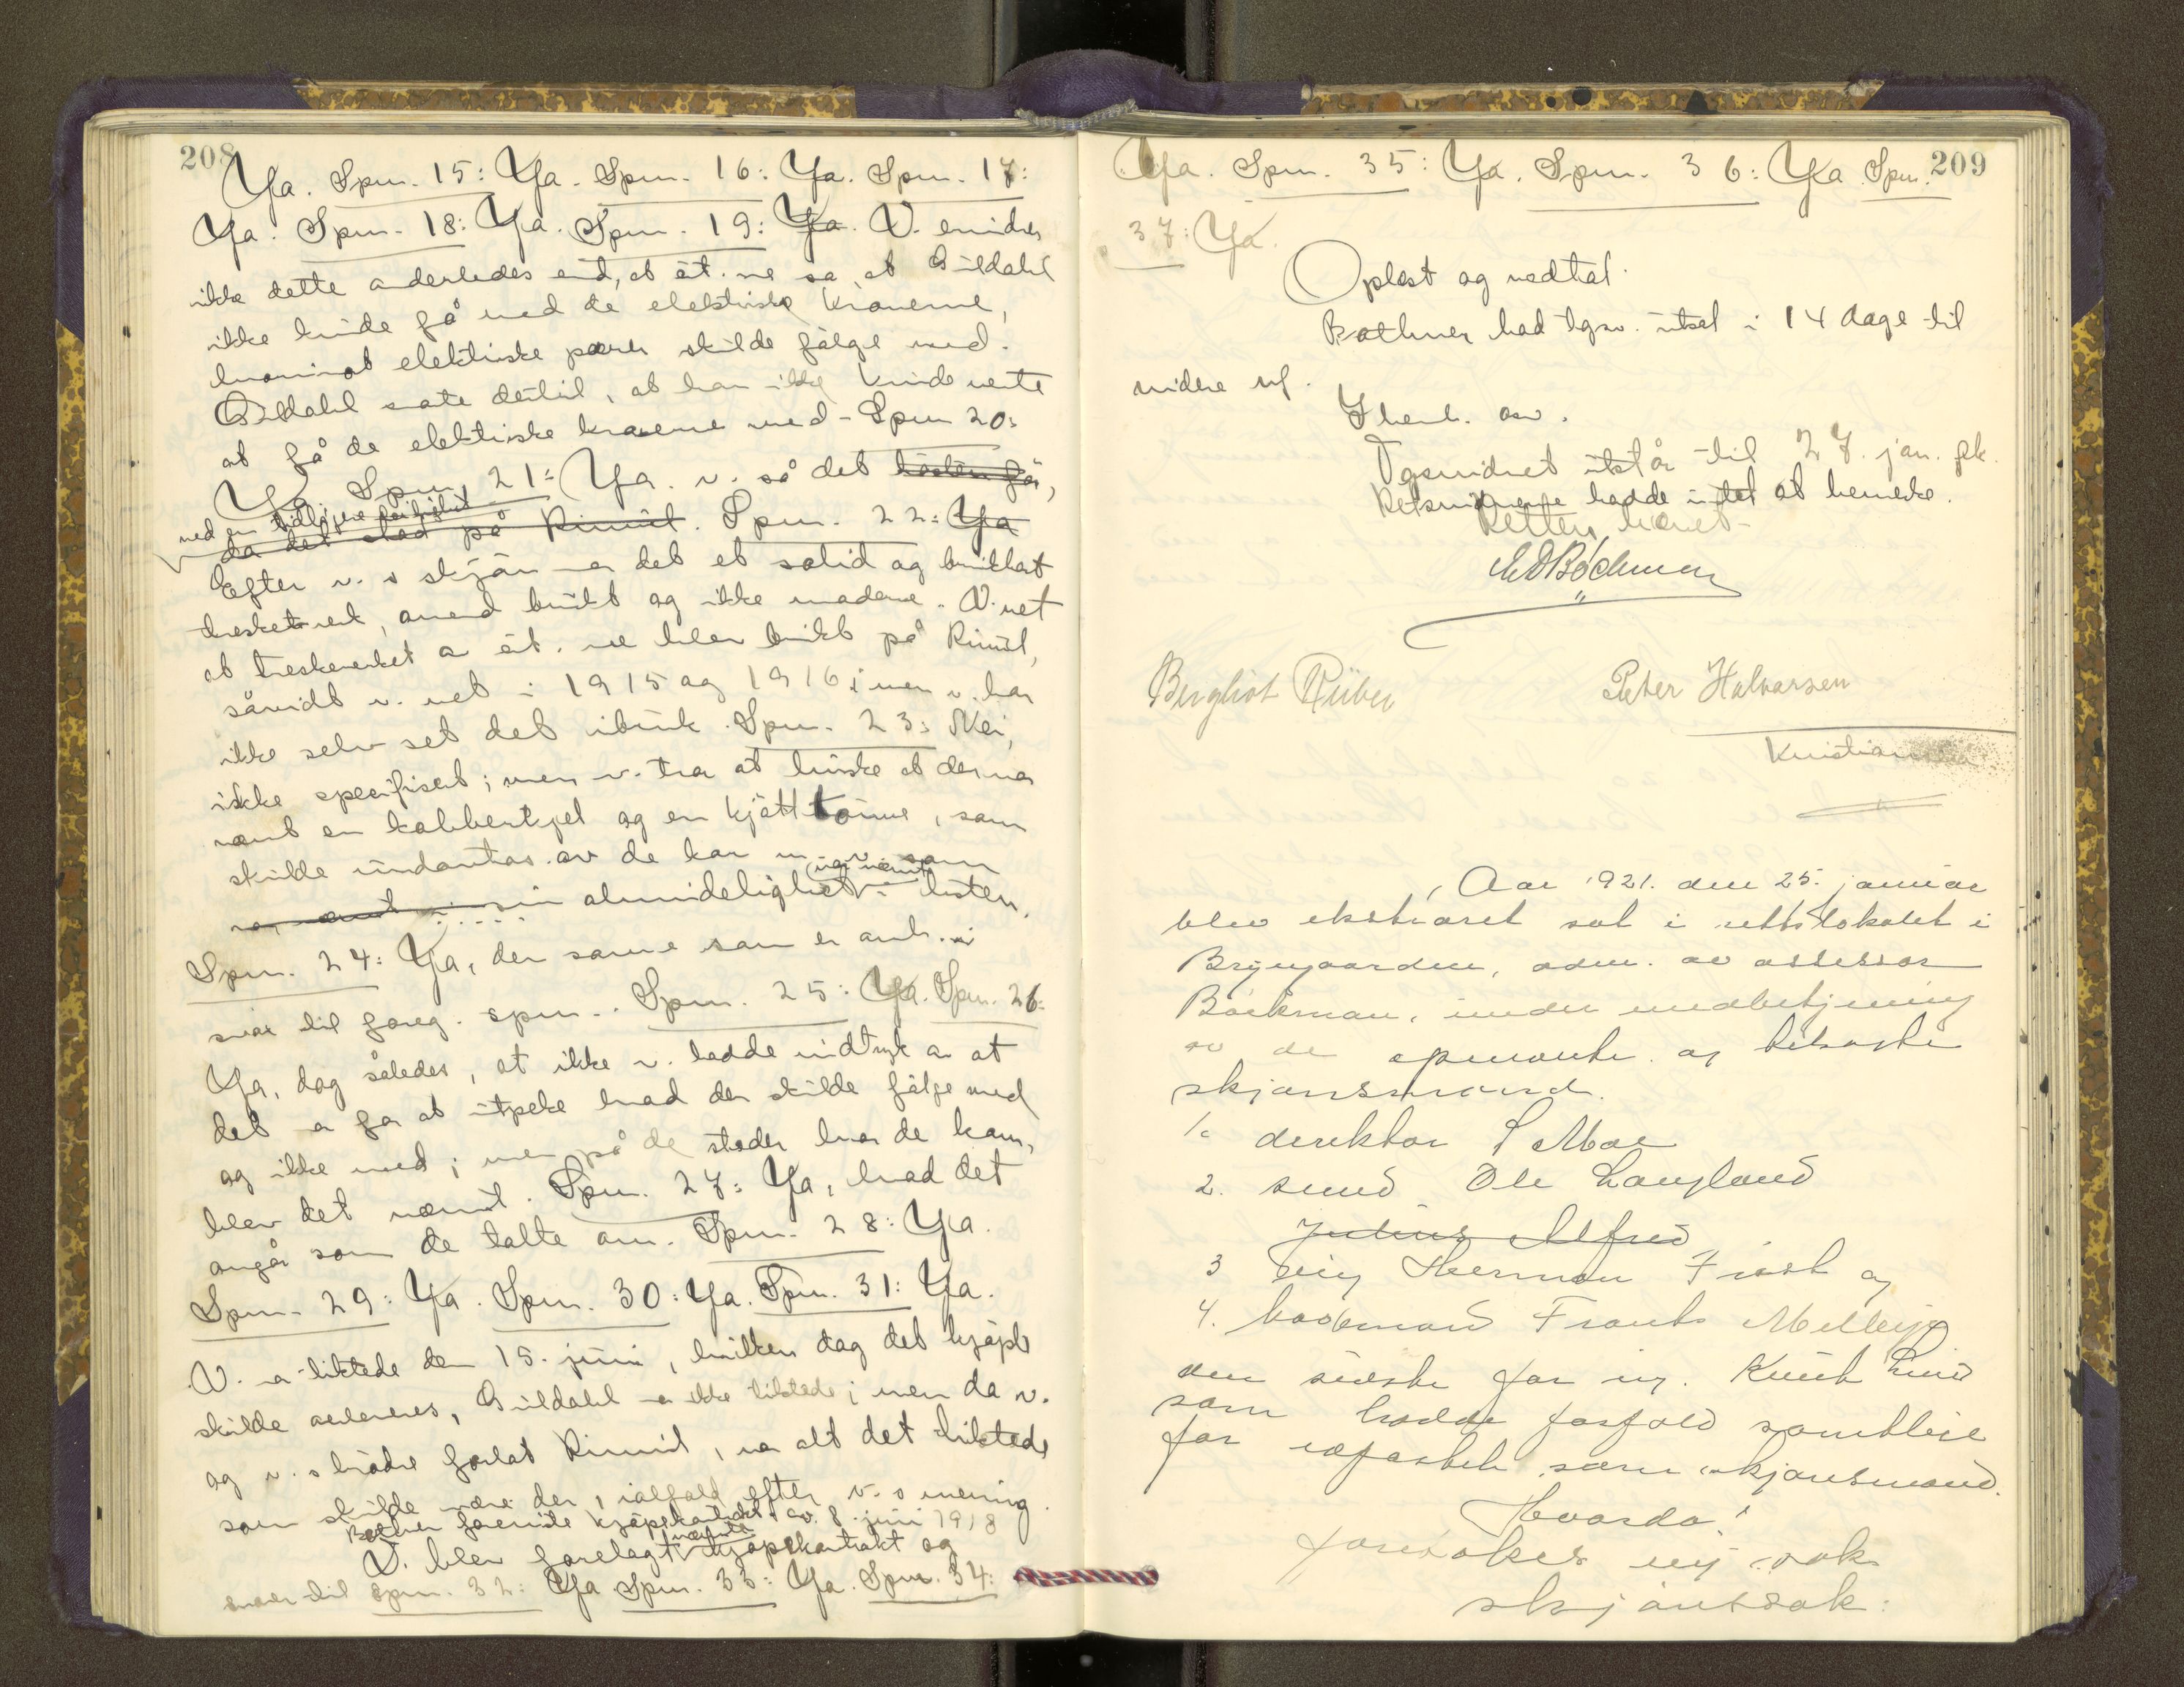 208
Ja. Spm. 15: Ja. Spm. 16: Ja. Spm. 17:
Ja. Spm. 18: Ja. Spm. 19: Ja. V. mindes
ikke dette anderledes end, at cit. ne sa, at Guldahl
ikke kunde få med de elektriske kronerne,
hvorimot elektriske pærer skulde følge med.
Guldahl svarte dertil, at han ikke kunde vente
at få de elektriske kronerne med. Spm 20:
Ja. Spm. 21: Ja. v. så det høsten før,
ved en tidligere leilighet
da det stod på Rimul. Spm. 22: Ja
Efter v.s skjøn er det et solid og brukbart
treskeverk, omend brukt og ikke moderne. V. vet
at treskeverket av cit. ne blev brukt på Rimul,
såvidt v. vet i 1915 og 1916; men v. har
ikke selv set det i bruk. Spm. 23: Nei,
ikke specifisert; men v. tror at huske at der var
nævnt en kobberkjel og en kjøttønne, som
skulde undantas av de kar som
var nævnt
var nævnt i sin almindelighet i listen.
Spm. 24: Ja, den samme som er anf. i
svar til foreg. spm.. Spm. 25: Ja. Spm. 26:
Ja, dog således, at ikke v. hadde indtryk av at
det var for at utpeke hvad der skulde følge med
og ikke med; men på de steder hvor de kom,
blev det nævnt. Spm. 27: Ja, hvad det
angår som de talte om. Spm. 28: Ja.
Spm. 29: Ja. Spm. 30: Ja. Spm. 31: Ja.
V. var tilstede den 15. juni, hvilken dag det kjøpte
skulde avleveres, Guldahl var ikke tilstede; men da v.
og v.s brødre forlot Rimul, var alt det tilstede
som skulde være der, ialfald efter v.s mening.
Bothner foreviste kjøpekontrakt av 8. juni 1918
V. blev forelagt nævnte kjøpekontrakt og
svarer til spm. 32: Ja Spm. 33: Ja. Spm. 34:
209
Ja. Spm. 35: Ja. Spm. 36: Ja. Spm.
37: Ja.
Oplæst og vedtat.
Bothner bad tgsv. utsat i 14 dage til
videre vf.
Ihend. av.
Tgsvidnet utstår til 27. jan. fk.
Retsvidnerne hadde intet at bemerke.
Retten hævet
Bøckman
Bergliot Rüber
Peter Halvorsen
Kristiansen
Aar 1921. den 25. januar
blev ekstraret sat i rettslokalet i
Bryngaarden, adm. av assessor
Bøckman, under medbetjening
av de opnævnte og tilkaldte
skjønsmænd.
1. direktør S Moe
2. smed Ole Langland
Julius Alfred
3 ing Herman Frost og
4. baatmand Frants Mellbye
den sidste for ing. Knut Lund
som hadde forfald samtlige
før edfæstet som skjønsmænd.
Hvorda!
foretokes ny sak
skjønssak: